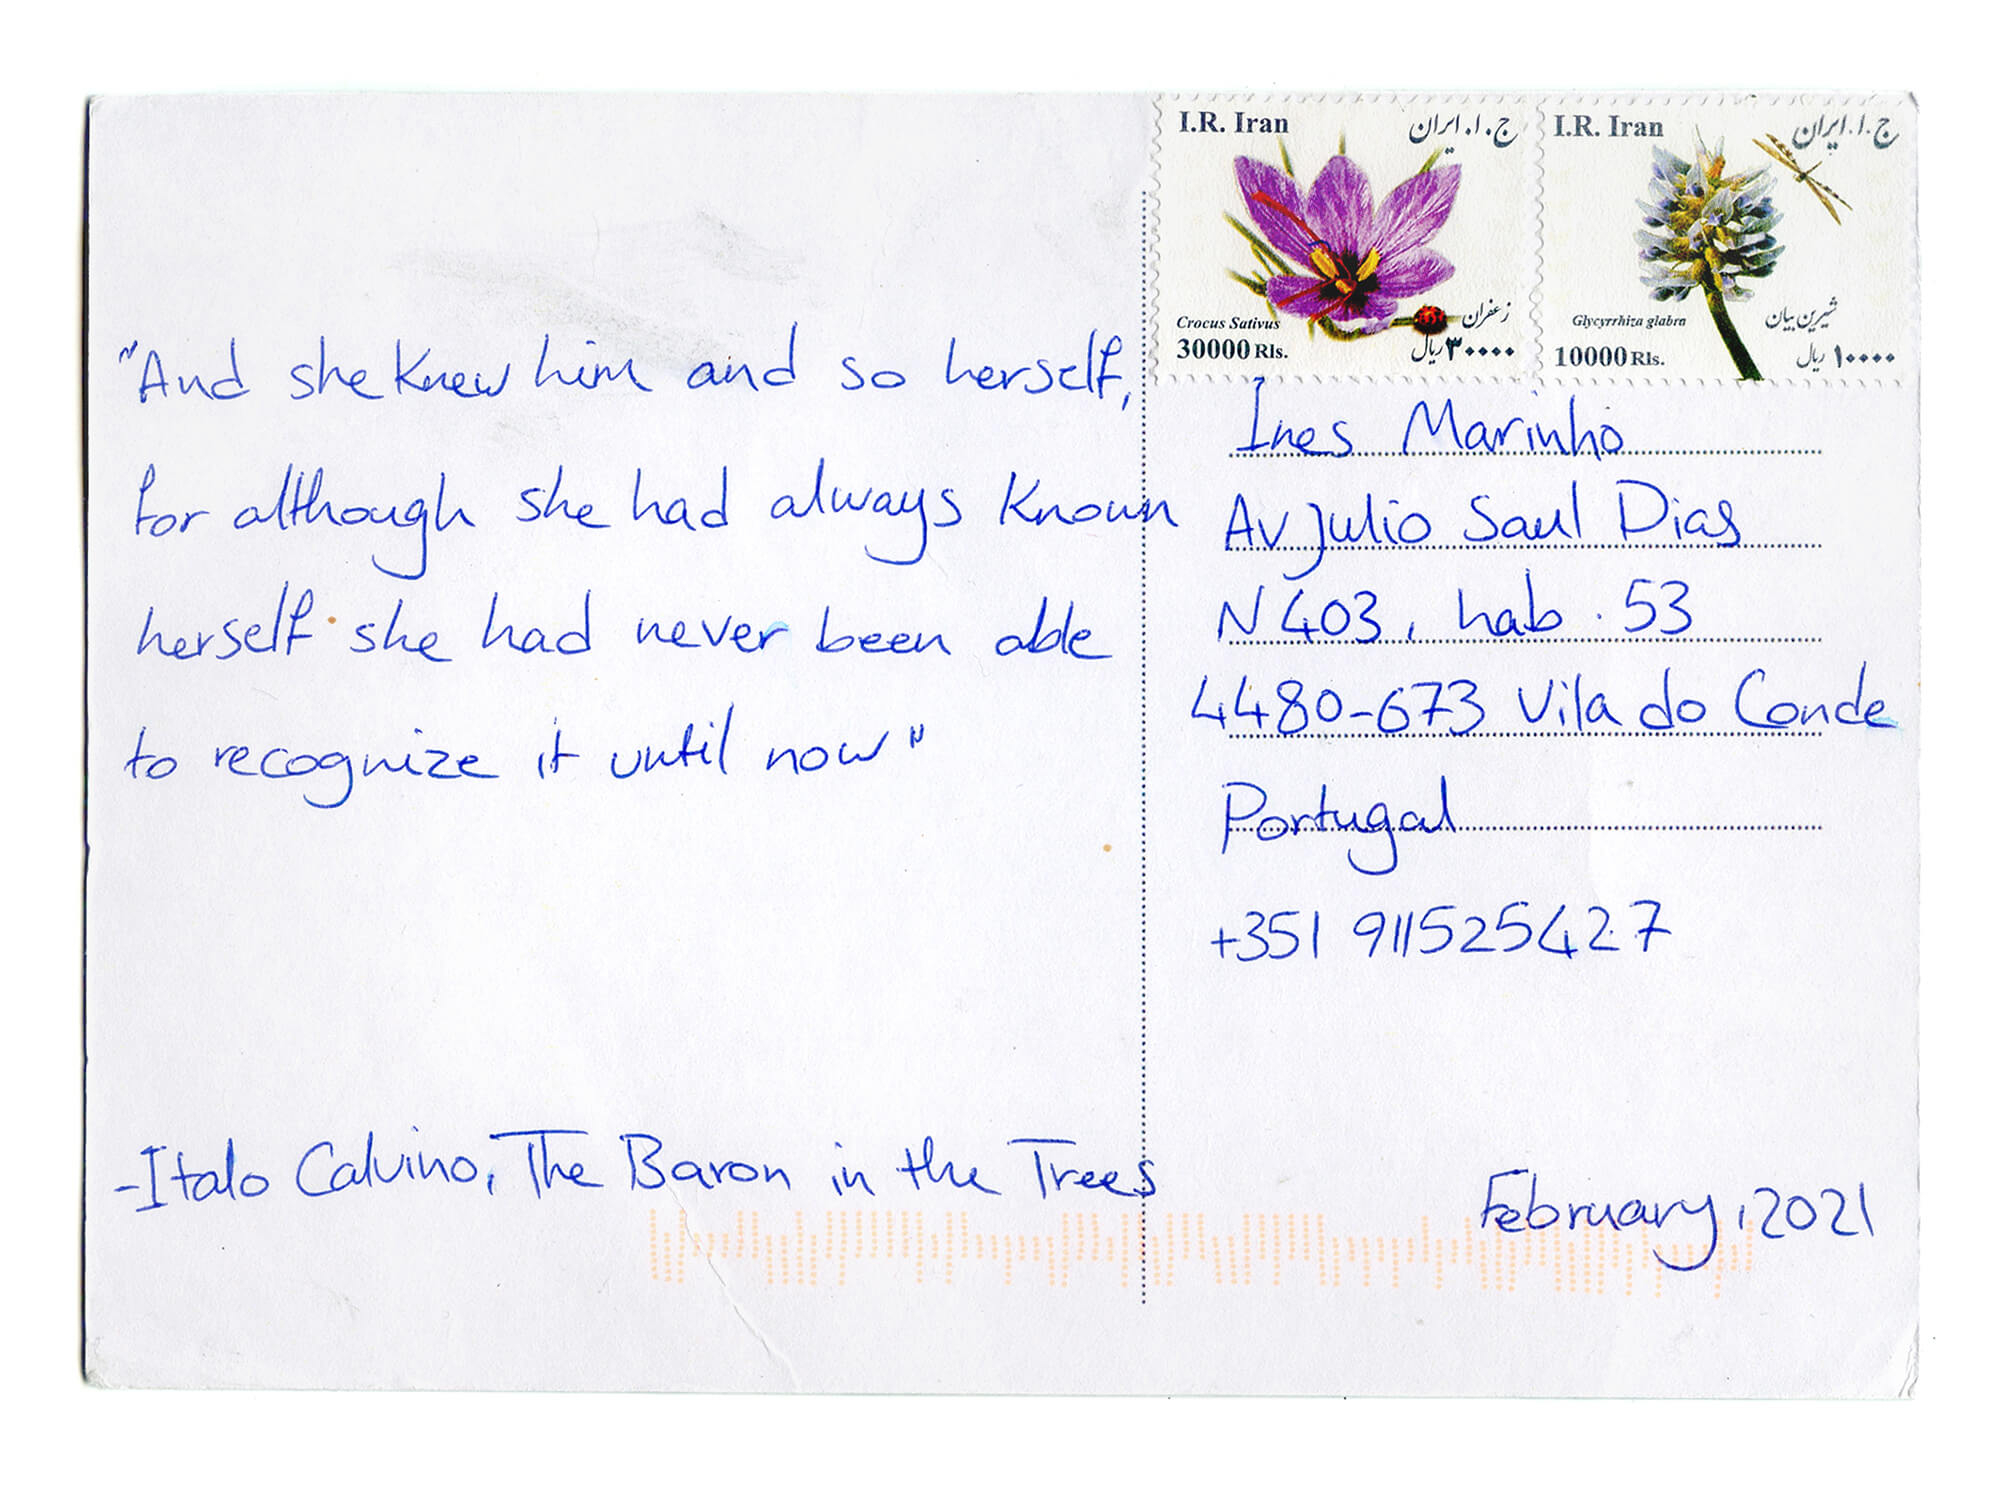 "And she knew him and so herself,
for although she had always known
herself she had never been able
to recognize it until now"
-Italo Calvino, The Baron in the Trees
I.R. Iran
ج.ا.ایران
Crocus Sativus
زعفران
30000 Rls.
۳۰۰۰۰ ریال
I.R. Iran
ج.ا.ایران
Glycyrrhiza glabra
شیرین بیان
10000 Rls.
۱۰۰۰۰ ریال
Ines Marinho
Av Julio Saul Dias
N 403, hab. 53
4480-673 Vila do Conde
Portugal
+351 911525427
February, 2021